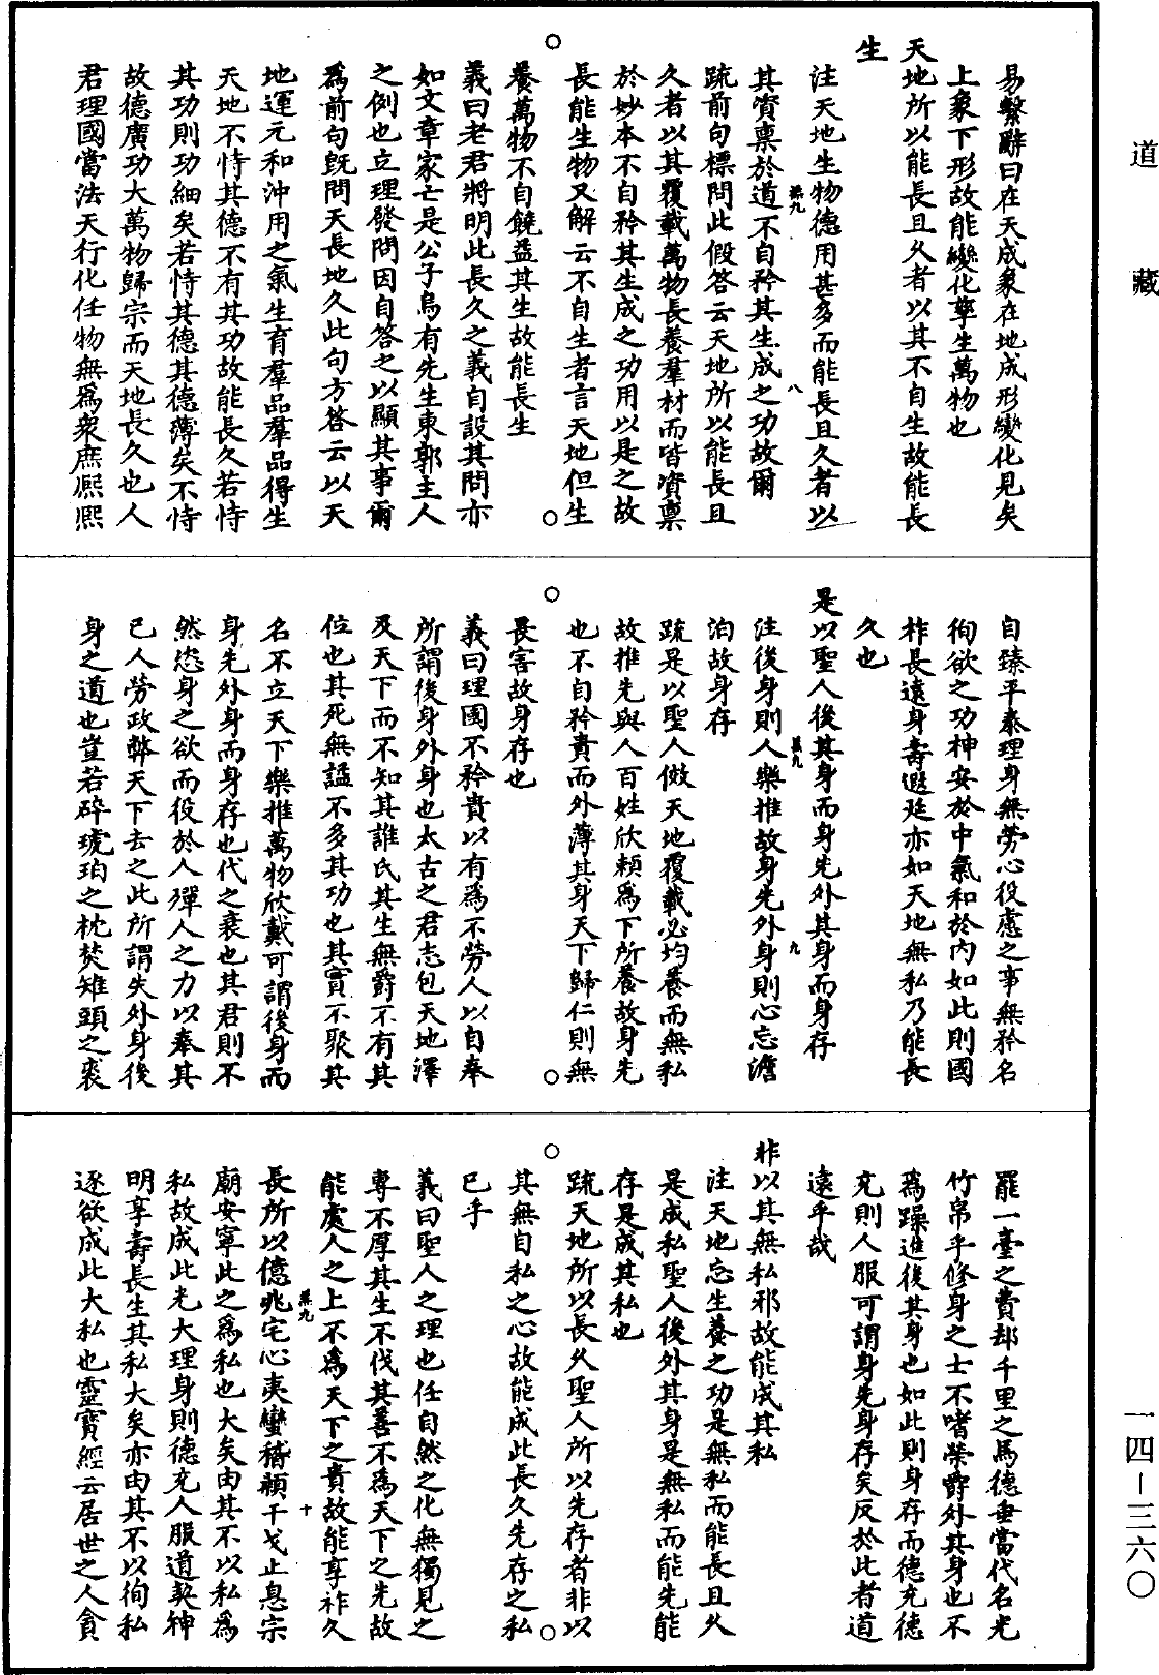 道藏
易繫辭曰在天成象在地成形變化見矣
上象下形故能變化孳生萬物也
天地所以能長且久者以其不自生故能長
生
注天地生物德用甚多而能長且久者以
其資稟於道不自矜其生成之功故爾
疏前句標問此假答云天地所以能長且
久者以其覆載萬物長養羣材而皆資稟
於妙本不自矜其生成之功用以是之故
長能生物又解云不自生者言天地但生
養萬物不自饒益其生故能長生
義曰老君將明此長久之義自設其問亦
如文章家亡是公子烏有先生東郭主人
之例也立理發問因自答之以顯其事爾
爲前句旣問天長地久此句方答云以天
地運元和沖用之氣生育羣品羣品得生
天地不恃其德不有其功故能長久若恃
其功則功細矣若恃其德其德薄矣不恃
故德廣功大萬物歸宗而天地長久也人
君理國當法天行化任物無爲衆庶熙熙
自臻平泰理身無勞心役慮之事無矜名
徇欲之功神安於中氣和於內如此則國
祚長遠身壽遐延亦如天地無私乃能長
久也
是以聖人後其身而身先外其身而身存
注後身則人樂推故身先外身則心忘澹
泊故身存
疏是以聖人倣天地覆載必均養而無私
故推先與人百姓欣賴爲下所養故身先
也不自矜貴而外薄其身天下歸仁則無
畏害故身存也
義曰理國不矜貴以有爲不勞人以自奉
所謂後身外身也太古之君志包天地澤
及天下而不知其誰氏其生無爵不有其
位也其死無諡不多其功也其實不聚其
名不立天下樂推萬物欣戴可謂後身而
身先外身而身存也代之衰也其君則不
然恣身之欲而役於人殫人之力以奉其
己人勞政弊天下去之此所謂失外身後
身之道也豈若碎琥珀之枕焚雉頭之裘
罷一臺之費却千里之馬德垂當代名光
竹帛乎修身之士不嗜榮爵外其身也不
爲躁進後其身也如此則身存而德充德
充則人服可謂身先身存矣反於此者道
遠乎哉
非以其無私邪故能成其私
注天地忘生養之功是無私而能長且久
是成私聖人後外其身是無私而能先能
存是成其私也
疏天地所以長久聖人所以先存者非以
其無自私之心故能成此長久先存之私
已乎
義曰聖人之理也任自然之化無獨見之
專不厚其生不伐其善不爲天下之先故
能處人之上不爲天下之貴故能享祚久
長所以億兆宅心夷蠻稽顙干戈止息宗
廟安寧此之爲私也大矣由其不以私爲
私故成此光大理身則德充人服道契神
明享壽長生其私大矣亦由其不以徇私
逐欲成此大私也靈寶經云居世之人貪
一四—三六〇